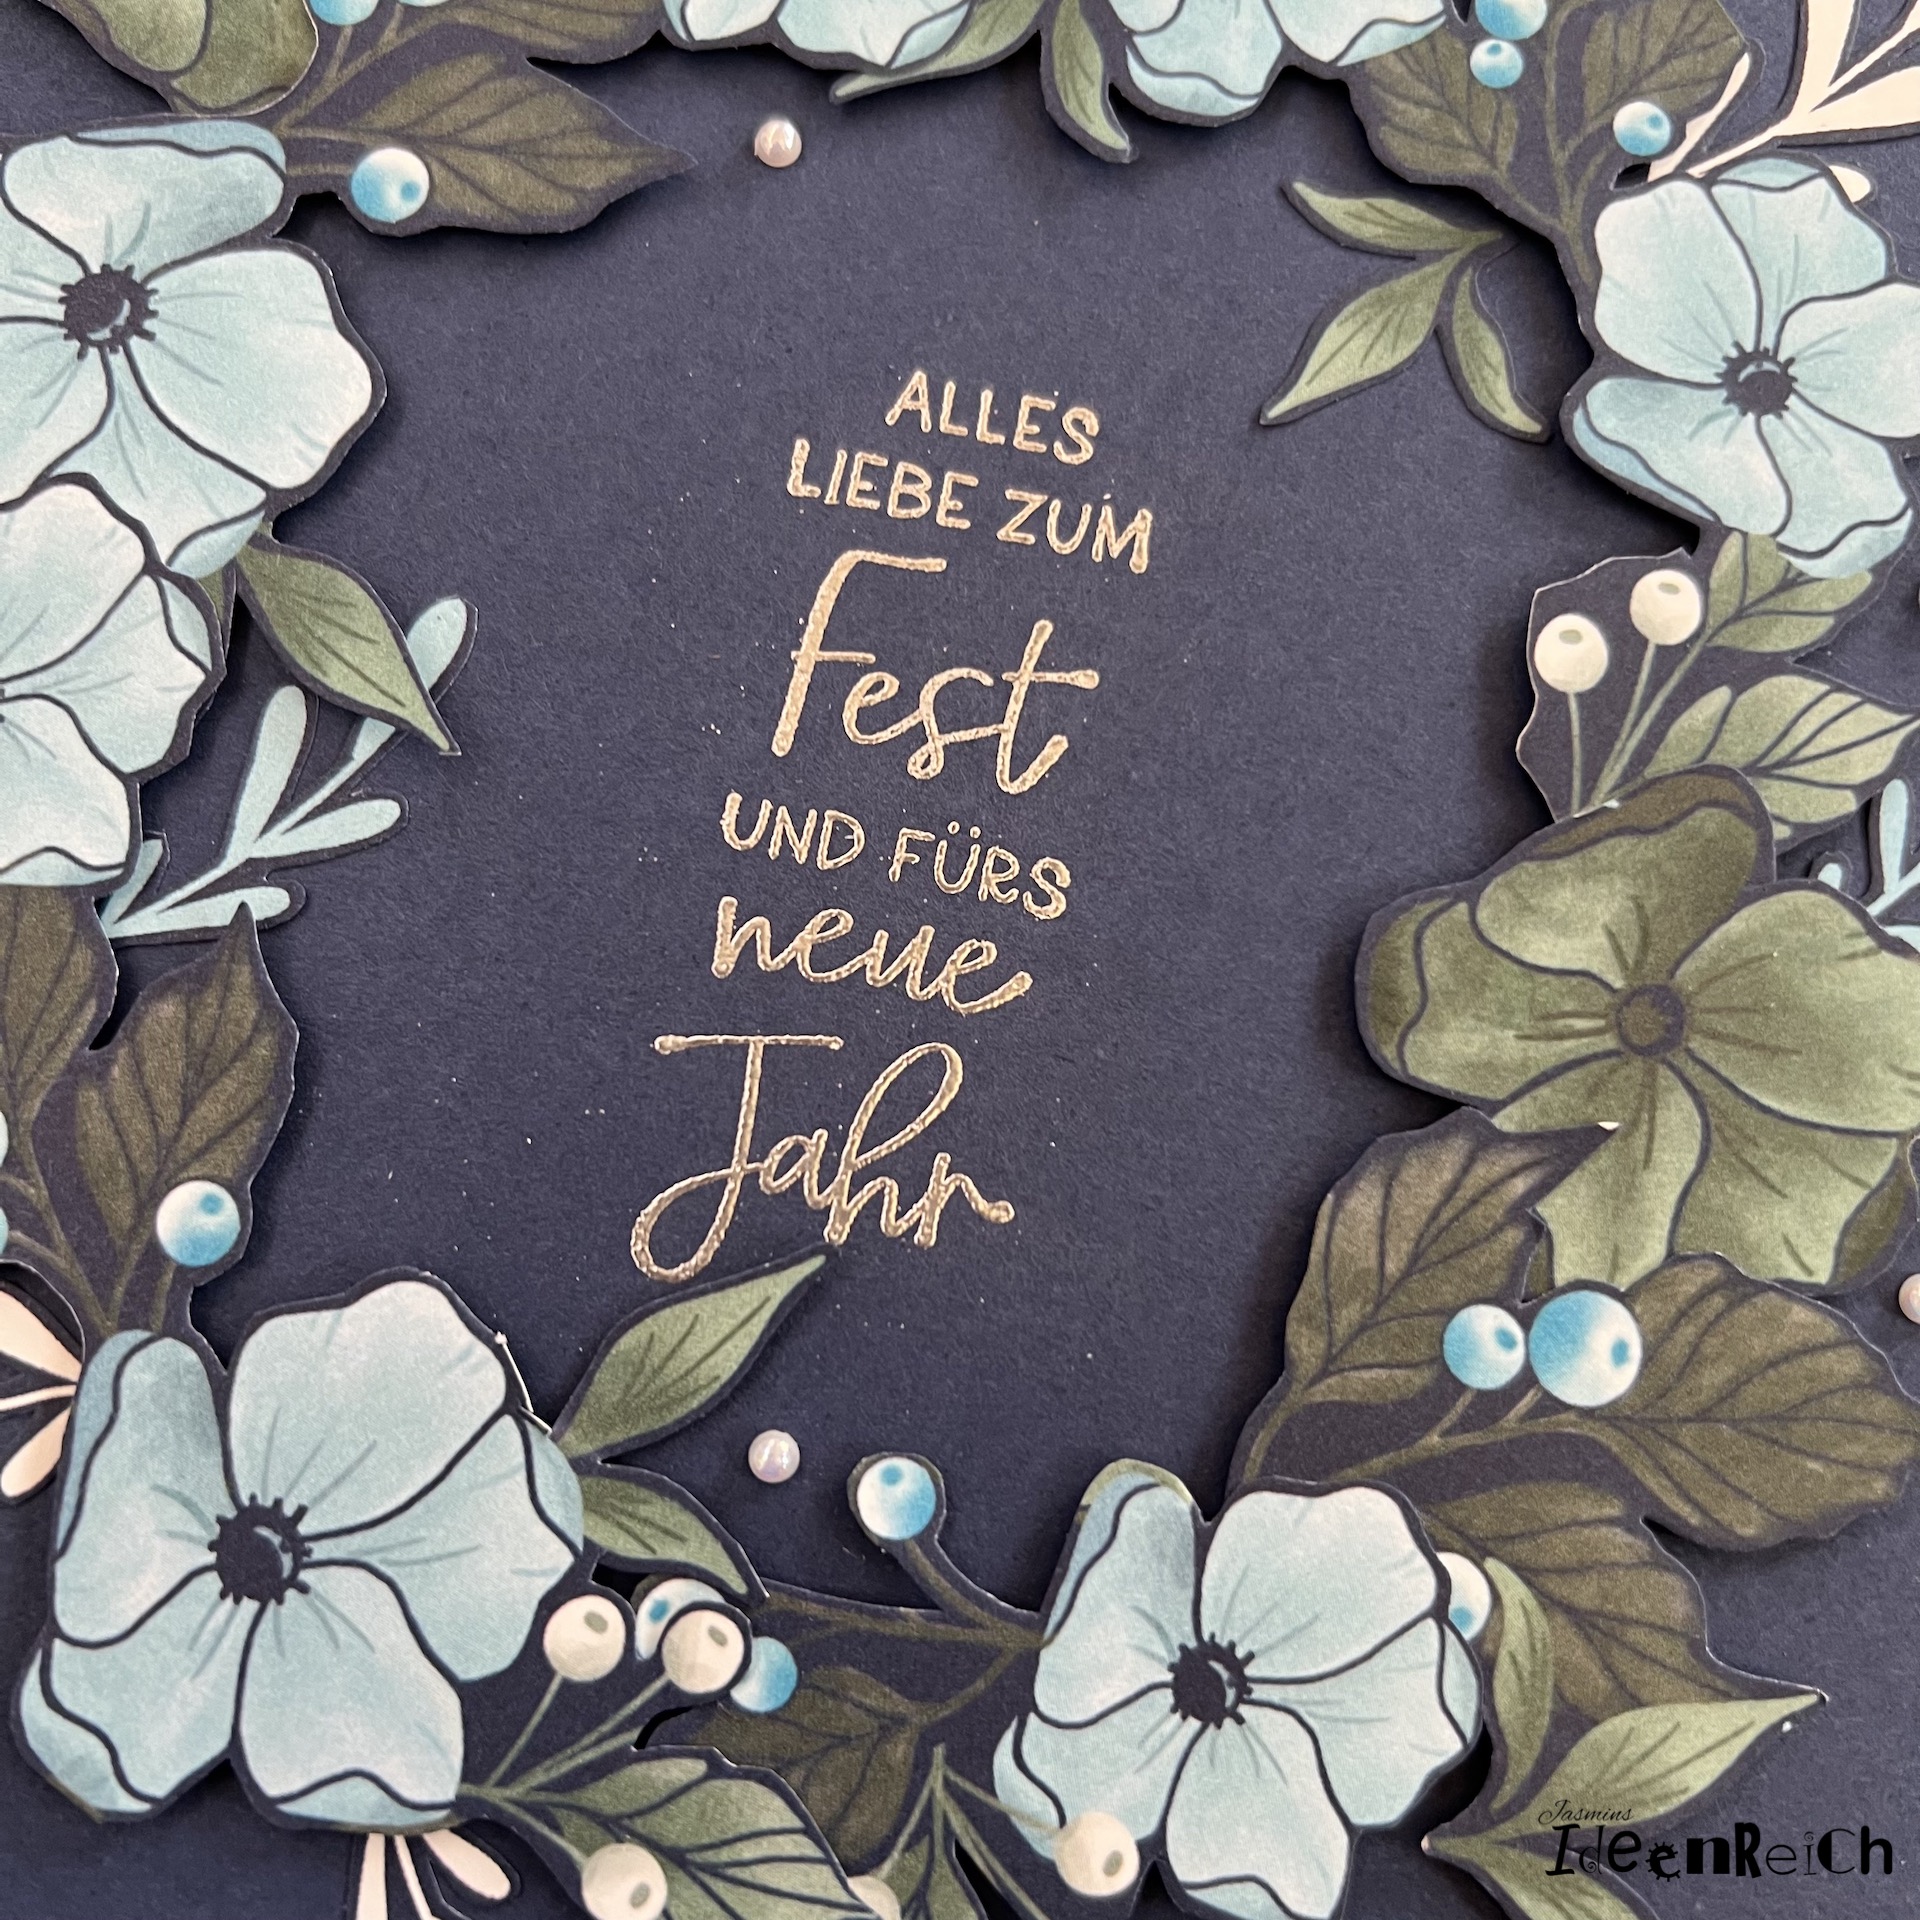 ALLES
LIEBE ZUM
Fest
UND FÜRS
neue
Jahr
Jasmins
IdeenReiCh